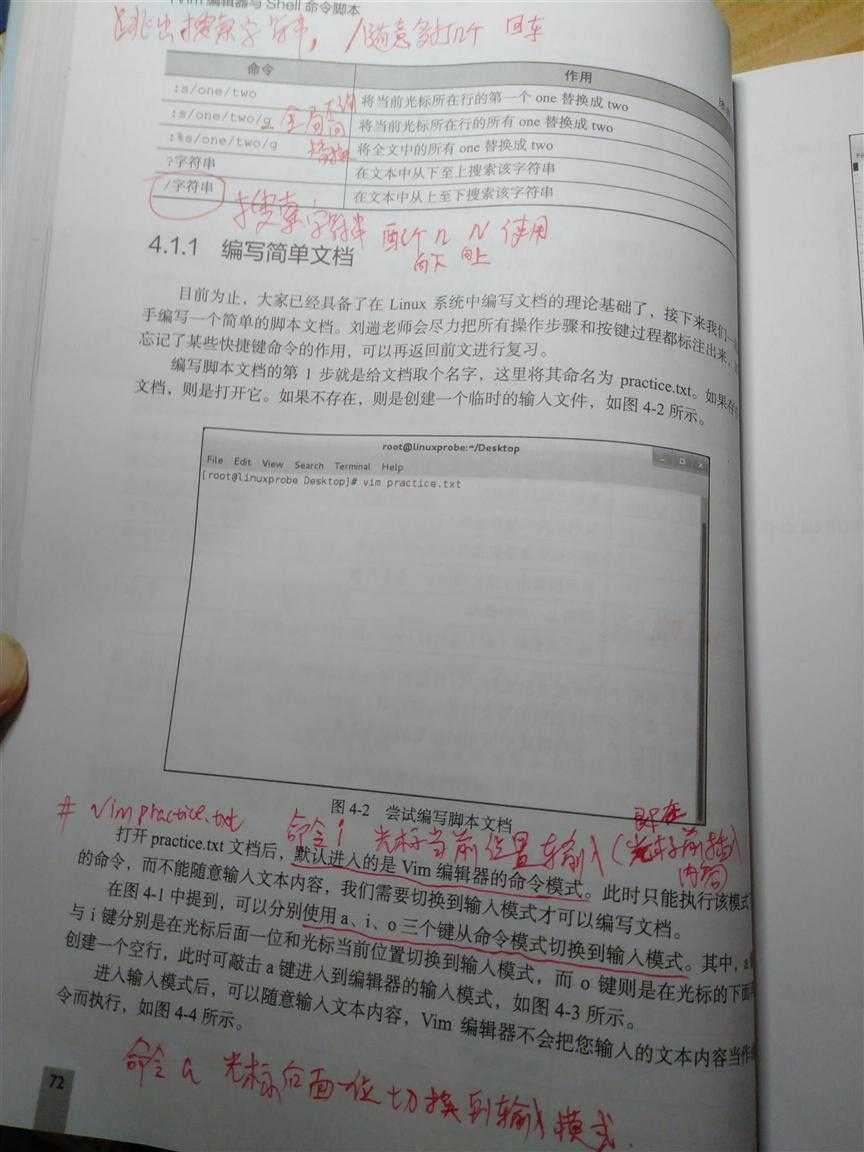 Vim 编辑器与 Shell 命令脚本
跳出搜索字符串, /随意多打几个 回车
命令 作用
:s/one/two 将当前光标所在行的第一个 one 替换成 two
:s/one/two/g 将当前光标所在行的所有 one 替换成 two
全局
替换
:%s/one/two/g 将全文中的所有 one 替换成 two
?字符串 在文本中从下至上搜索该字符串
/字符串 在文本中从上至下搜索该字符串
搜索字符串 配合 n N 使用
向下 向上
4.1.1 编写简单文档
目前为止，大家已经具备了在 Linux 系统中编写文档的理论基础了，接下来我们一
手编写一个简单的脚本文档。刘遄老师会尽力把所有操作步骤和按键过程都标注出来，
忘记了某些快捷键命令的作用，可以再返回前文进行复习。
编写脚本文档的第 1 步就是给文档取个名字，这里将其命名为 practice.txt。如果存
文档，则是打开它。如果不存在，则是创建一个临时的输入文件，如图 4-2 所示。
root@linuxprobe:~/Desktop
File Edit View Search Terminal Help
[root@linuxprobe Desktop]# vim practice.txt
图 4-2 尝试编写脚本文档
# vim practice.txt
命令 i 光标当前位置输入 (即在光标前插入内容)
打开 practice.txt 文档后，默认进入的是 Vim 编辑器的命令模式。此时只能执行该模式
的命令，而不能随意输入文本内容，我们需要切换到输入模式才可以编写文档。
在图 4-1 中提到，可以分别使用 a、i、o 三个键从命令模式切换到输入模式。其中，a
与 i 键分别是在光标后面一位和光标当前位置切换到输入模式，而 o 键则是在光标的下面
创建一个空行，此时可敲击 a 键进入到编辑器的输入模式，如图 4-3 所示。
进入输入模式后，可以随意输入文本内容，Vim 编辑器不会把您输入的文本内容当作
令而执行，如图 4-4 所示。
命令 a 光标后面一位切换到输入模式.
72